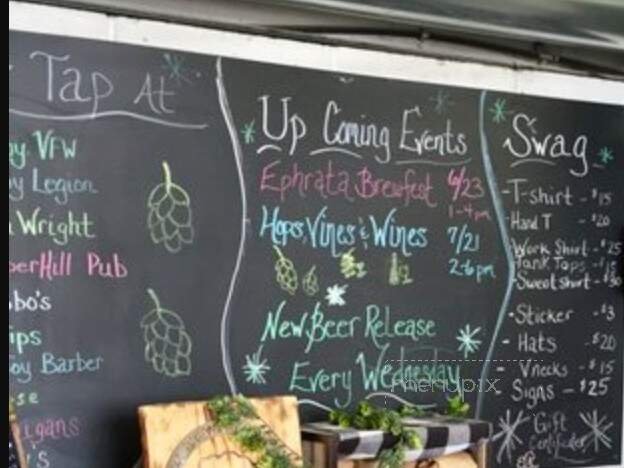 Tap At
y VFW
y Legion
Wright
perHill Pub
bo's
ips
oy Barber
se
igans
's
Up Coming Events
Ephrata Brewfest 6/23
1-4 pm
Hops, Vines & Wines 7/21
2-6 pm
New Beer Release
Every Wednesday
Swag
-T-shirt - $15
-Hand T - $20
Work Shirt - $25
Tank Tops - $15
Sweatshirt - $30
-Sticker - $3
- Hats - $20
- Vnecks - $15
- Signs - $25
Gift
Certificates
menupix